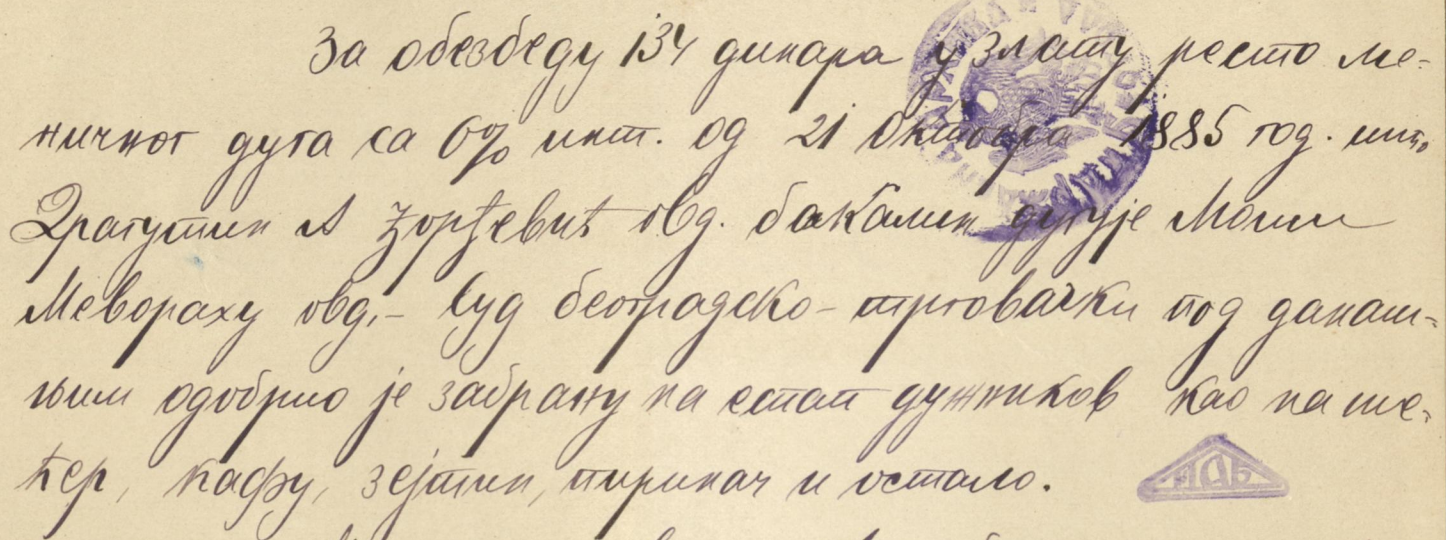 За обезбеду 134 динара у злату ресто ме-
ничног дуга са 6% инт. од 21 Октобра 1885 год. што
Драгутин А Ђорђевић овд. бакалин дугује Моши
Мевораху овд.- Суд београдско-трговачки под данаш-
њим одобрио је забрану на еспап дужников као на ше-
ћер, кафу, зејтин, пиринач и остало.
ИАБ